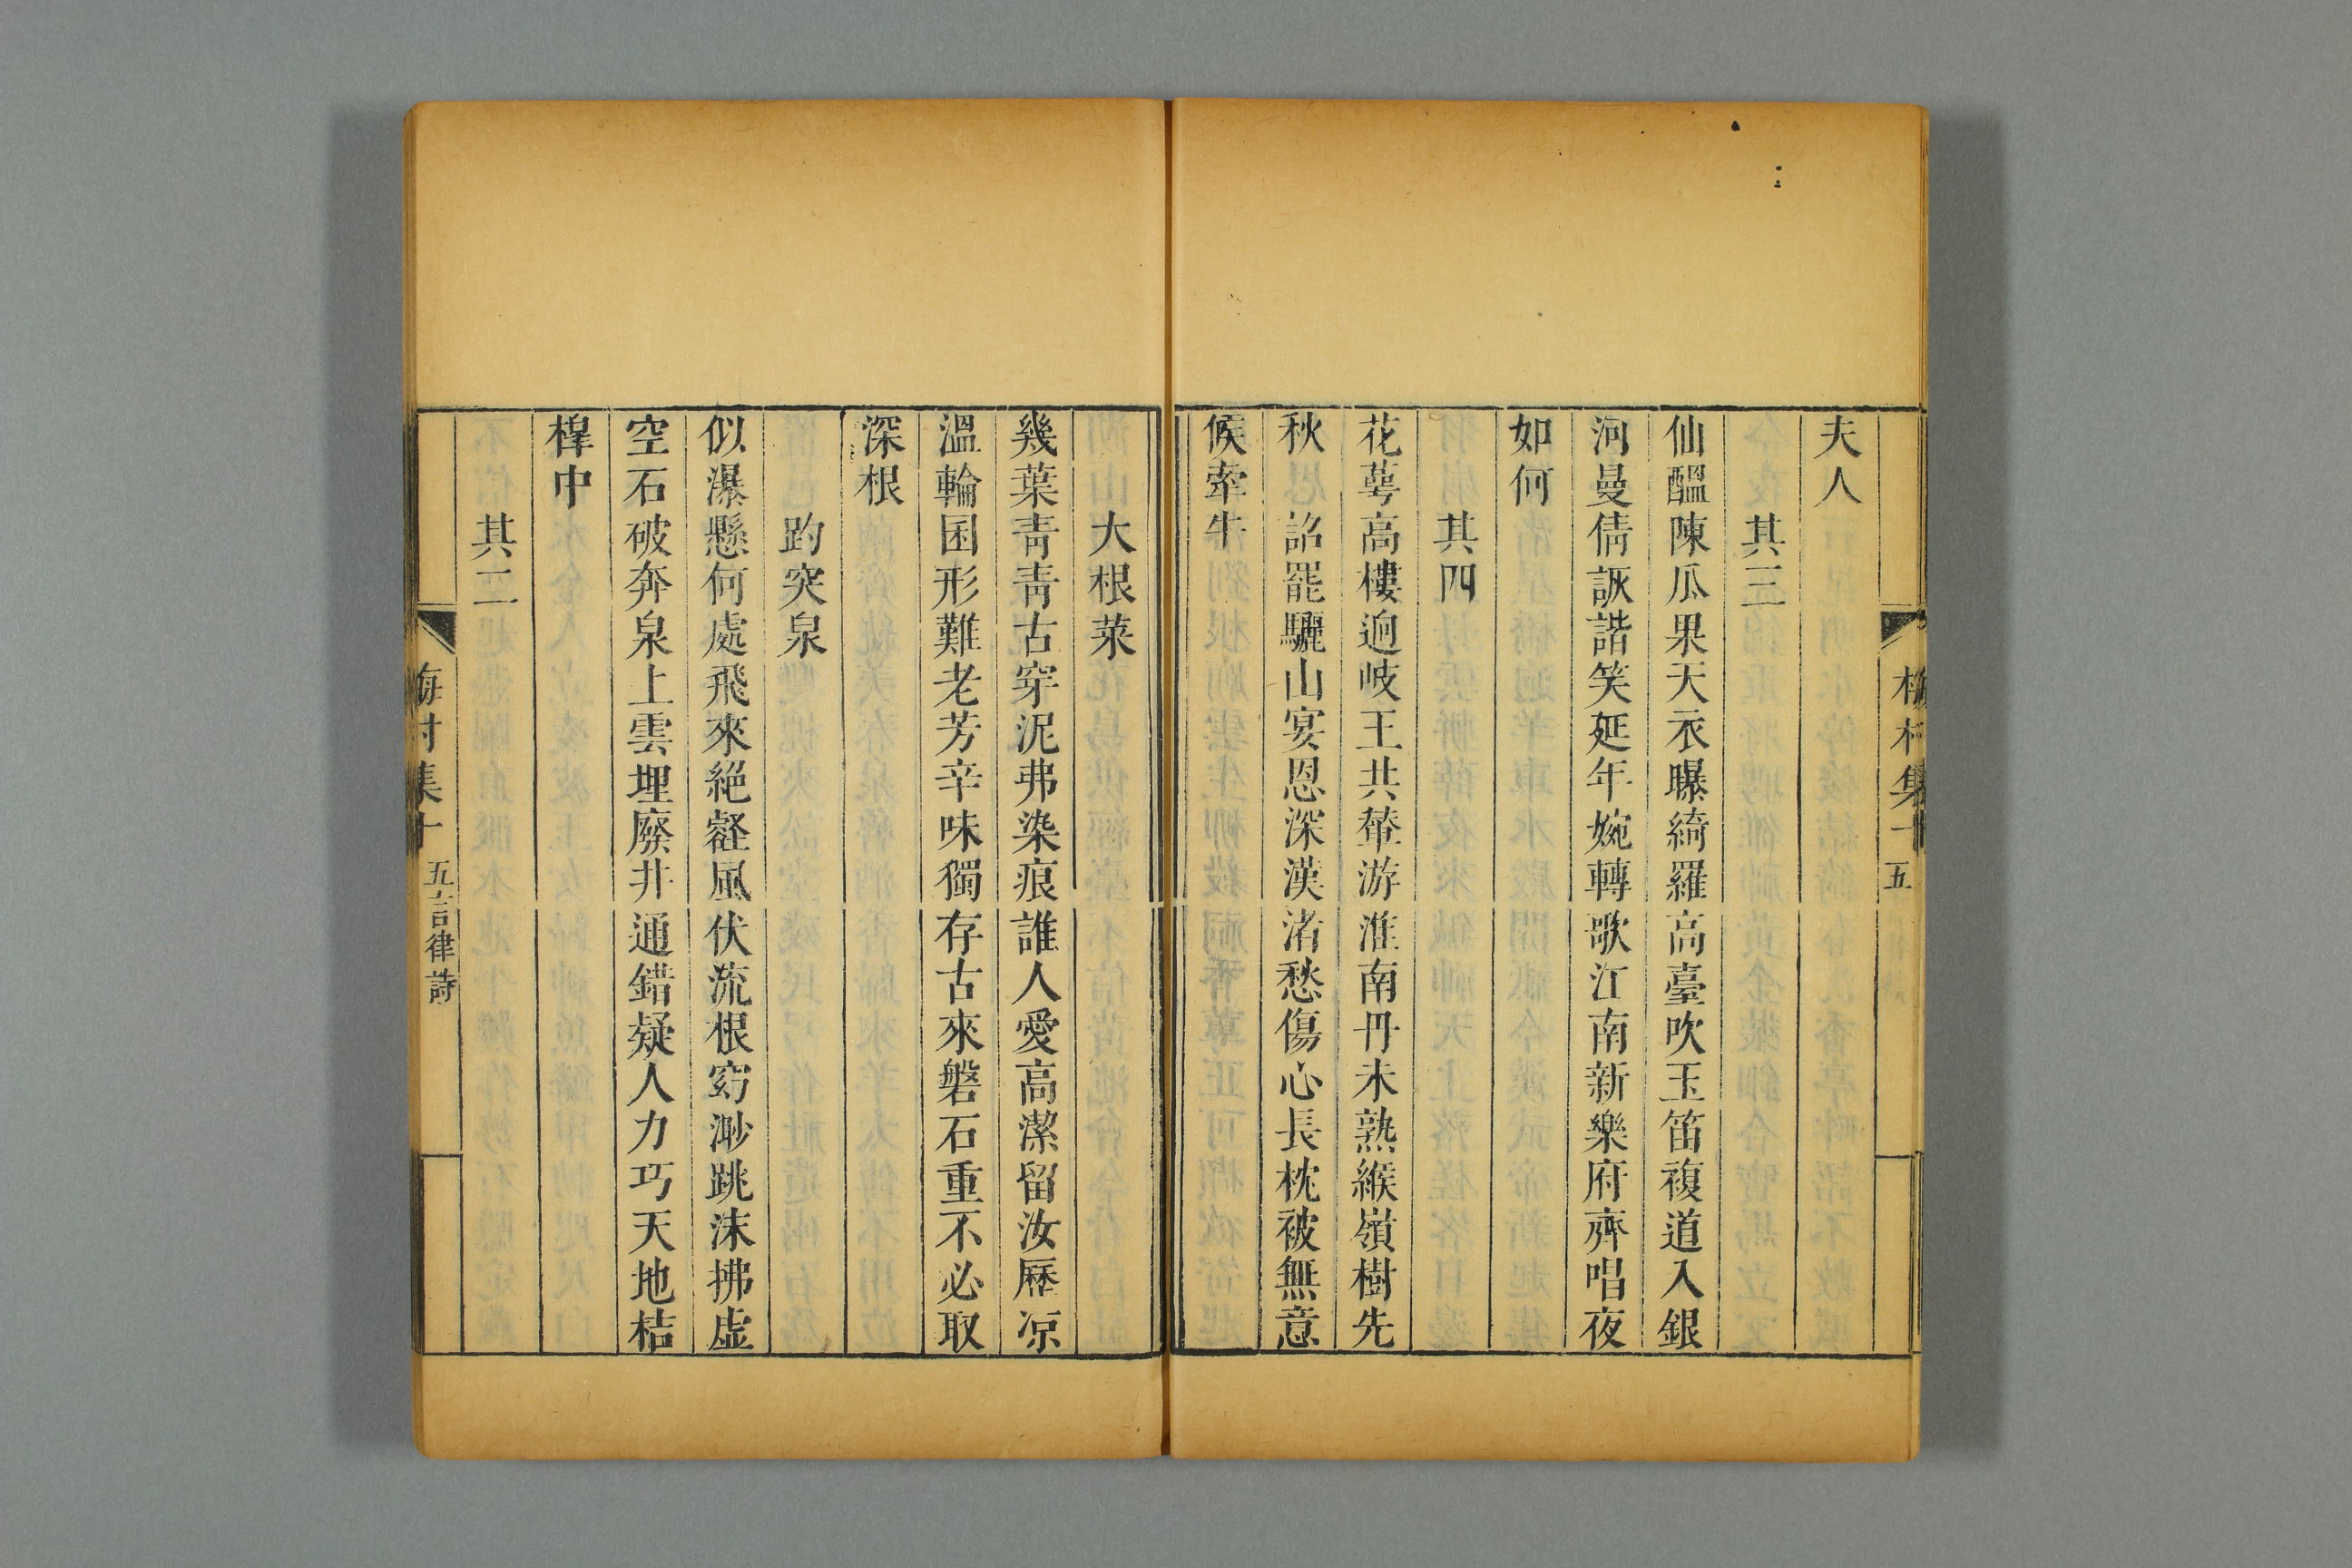 夫人
其三
仙醞陳瓜果天衣曝綺羅高臺吹玉笛複道入銀
河曼倩詼諧笑延年婉轉歌江南新樂府齊唱夜
如何
其四
花萼高樓迥岐王共輦游淮南丹未熟緱嶺樹先
秋恩詔罷驪山宴恩深漢渚愁傷心長枕被無意
候牽牛
大根菜
幾葉青青古穿泥弗染痕誰人愛高潔留汝歷凉
溫輪囷形難老芳辛味獨存古來磐石重不必取
深根
趵突泉
似瀑懸何處飛來絕壑風伏流根窈渺跳沫拂虛
空石破奔泉上雲埋廢井通錯疑人力巧天地桔
槹中
其二
梅村集十
五言律詩
梅村集十
五